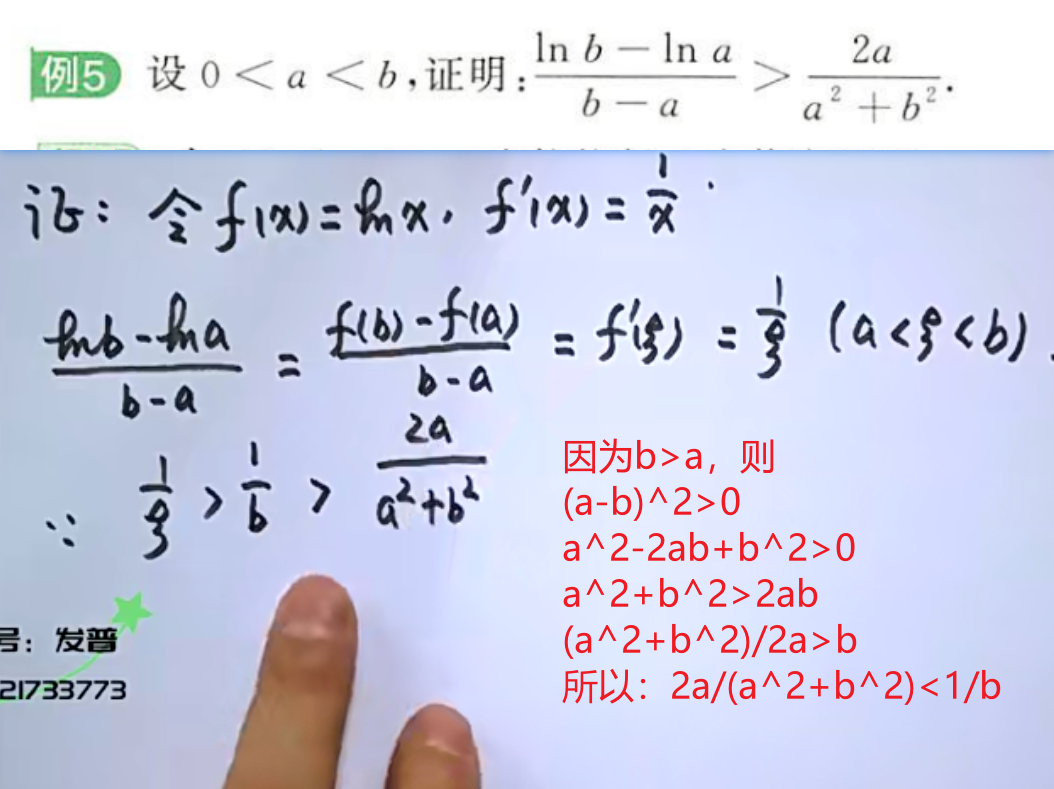 例5 设 0 < a < b,证明:\frac{\ln b - \ln a}{b - a} > \frac{2a}{a^2 + b^2}.
证: 令 f(x) = ln x. f'(x) = \frac{1}{x}.
\frac{ln b - ln a}{b - a} = \frac{f(b) - f(a)}{b - a} = f'(ξ) = \frac{1}{ξ} (a < ξ < b).
∵ \frac{1}{ξ} > \frac{1}{b} > \frac{2a}{a^2 + b^2}
因为b>a，则
(a-b)^2>0
a^2-2ab+b^2>0
a^2+b^2>2ab
(a^2+b^2)/2a>b
所以：2a/(a^2+b^2)<1/b
号：发普
21733773